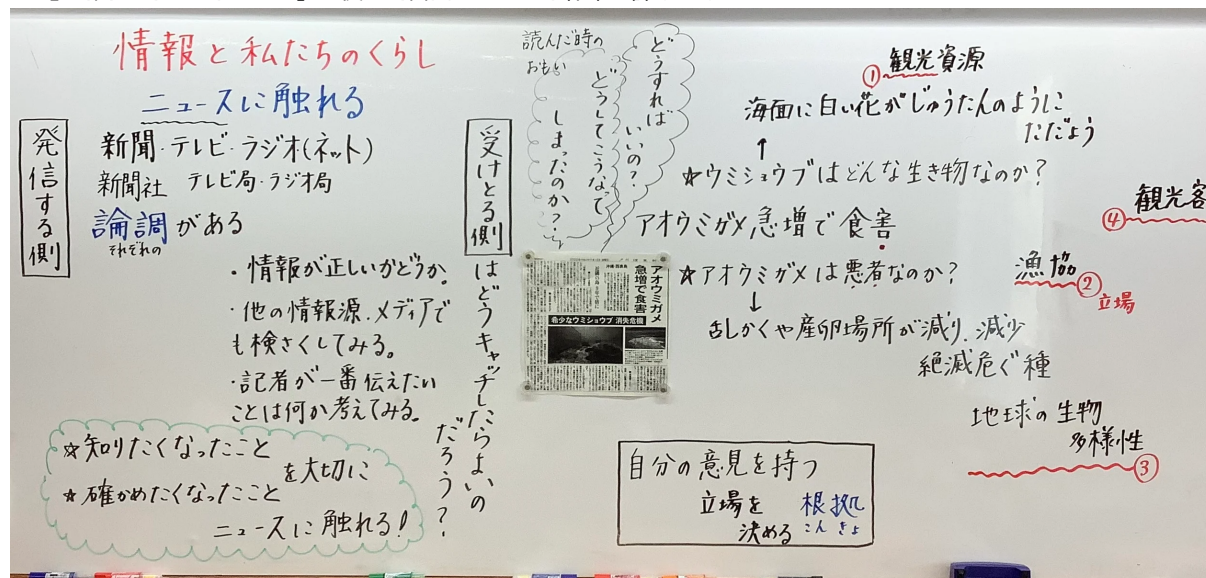 情報と私たちのくらし
ニュースに触れる
発信する側
新聞・テレビ・ラジオ(ネット)
新聞社 テレビ局・ラジオ局
論調がある
それぞれの
・情報が正しいかどうか。
・他の情報源、メディアで
も検さくしてみる。
・記者が一番伝えたい
ことは何か考えてみる。
☆知りたくなったこと
を大切に
☆確かめたくなったこと
ニュースに触れる!
受けとる側はどうキャッチしたらよいの
だろう?
読んだ時の
おもい
どうすれば
いいの?
どうしてこうなって
しまったのか?
アオウミガメ
急増で食害
希少なウミショウブ 消失危機
①観光資源
海面に白い花がじゅうたんのように
ただよう
↑
☆ウミショウブはどんな生き物なのか?
アオウミガメ急増で食害
☆アオウミガメは悪者なのか?
↓
乱かくや産卵場所が減り、減少
絶滅危ぐ種
④観光客
漁協②
立場
地球の生物
多様性
③
自分の意見を持つ
立場を 根拠
決める こんきょ